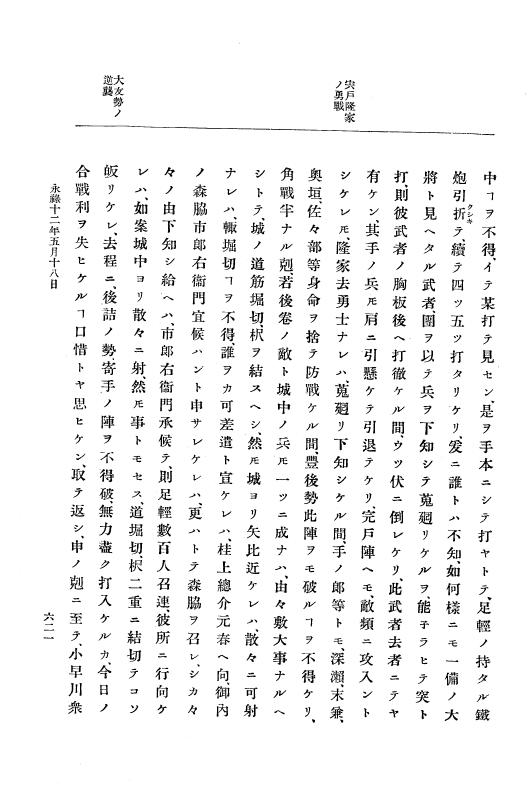 宍戸隆家
ノ勇戰
大友勢ノ
逆襲
中ヿヲ不得、イテ某打テ見セン、是ヲ手本ニシテ打ヤトテ、足輕ノ持タル鐵
炮引折テ、續テ四ツ五ツ打タリケリ、爰ニ誰トハ不知、如何樣ニモ一備ノ大
クシキ
將ト見ヘタル武者、團ヲ以テ兵ヲ下知シテ蒐廻リケルヲ、能子ラヒテ突ト
打、則彼武者ノ胸板後ヘ打徹ケル間、ウツ伏ニ倒レケリ、此武者去者ニテヤ
有ケン、其手ノ兵𪜈肩ニ引懸ケテ引退テケリ、宍戸陣ヘモ、敵頻ニ攻入ント
シケレ𪜈、隆家去勇士ナレハ、蒐廻リ下知シケル間、手ノ郎等トモ、深瀨、末兼、
奥垣、佐々部等身命ヲ捨テ防戰ケル間、豐後勢此陣ヲモ破ルヿヲ不得ケリ、
角戰半ナル剋、若後卷ノ敵ト城中ノ兵𪜈一ツニ成ナハ、由々敷大事ナルヘ
シトテ、城ノ道筋堀切、柵ヲ結スヘシ、然𪜈城ヨリ矢比近ケレハ、散々ニ可射
ナレハ、輙堀切ヿヲ不得、誰ヲカ可差遣ト宣ケレハ、桂上總介元春ヘ向、御內
ノ森脇市郎右衞門宜候ハント申サレケレハ、更ハトテ森脇ヲ召レ、シカ々
々ノ由下知シ給ヘハ、市郎右衞門承候テ、則足輕數百人召連、彼所ニ行向ケ
レハ、如案城中ヨリ散々ニ射、然𪜈事トモセス、道堀切、柵二重ニ結切テコソ
皈リケレ、去程ニ、後詰ノ勢、寄手ノ陣ヲ不得破、無力盡ク打入ケルカ、今日ノ
合戰利ヲ失ヒケルヿ口惜トヤ思ヒケン、取テ返シ、申ノ剋ニ至テ、小早川衆
永祿十二年五月十八日
六二一